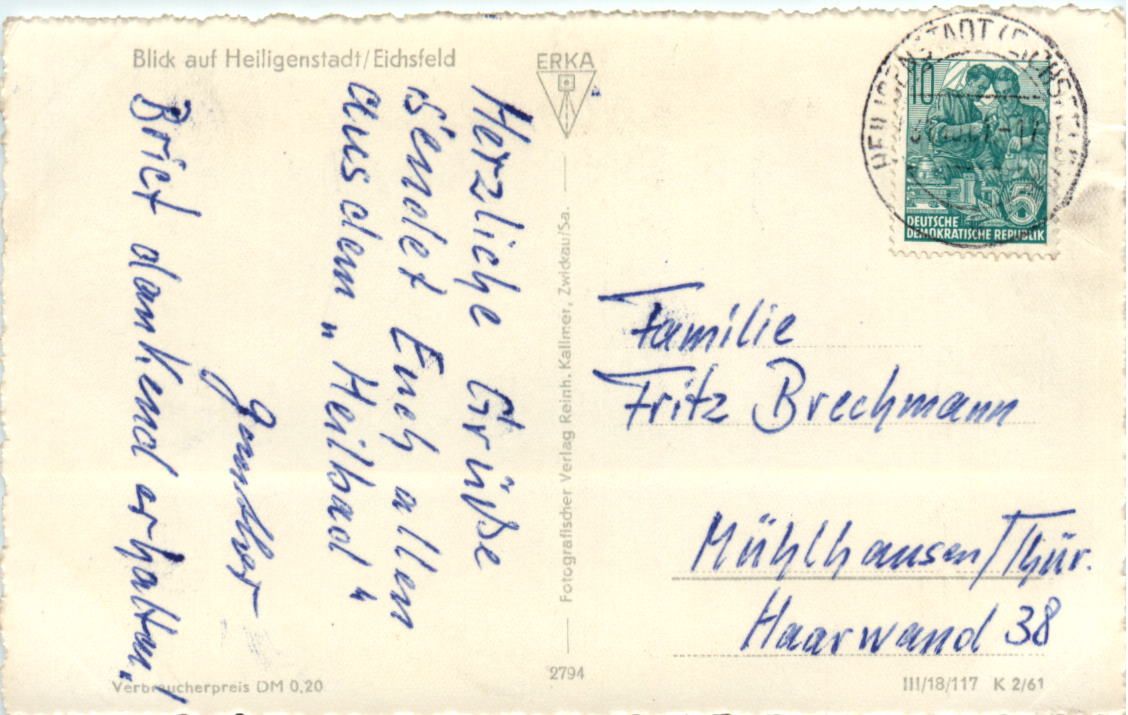 Blick auf Heiligenstadt/Eichsfeld
ERKA
Herzliche Grüße
sendet Euch allen
aus dem „Heilbad"
Günther
Brief dankend erhalten!
Fotografischer Verlag Reinh. Kallmer, Zwickau/Sa.
HEILIGENSTADT (EICHSFELD)
10
5
DEUTSCHE
DEMOKRATISCHE REPUBLIK
Familie
Fritz Brechmann
Mühlhausen/Thür.
Haarwand 38
Verbraucherpreis DM 0,20
2794
III/18/117 K 2/61